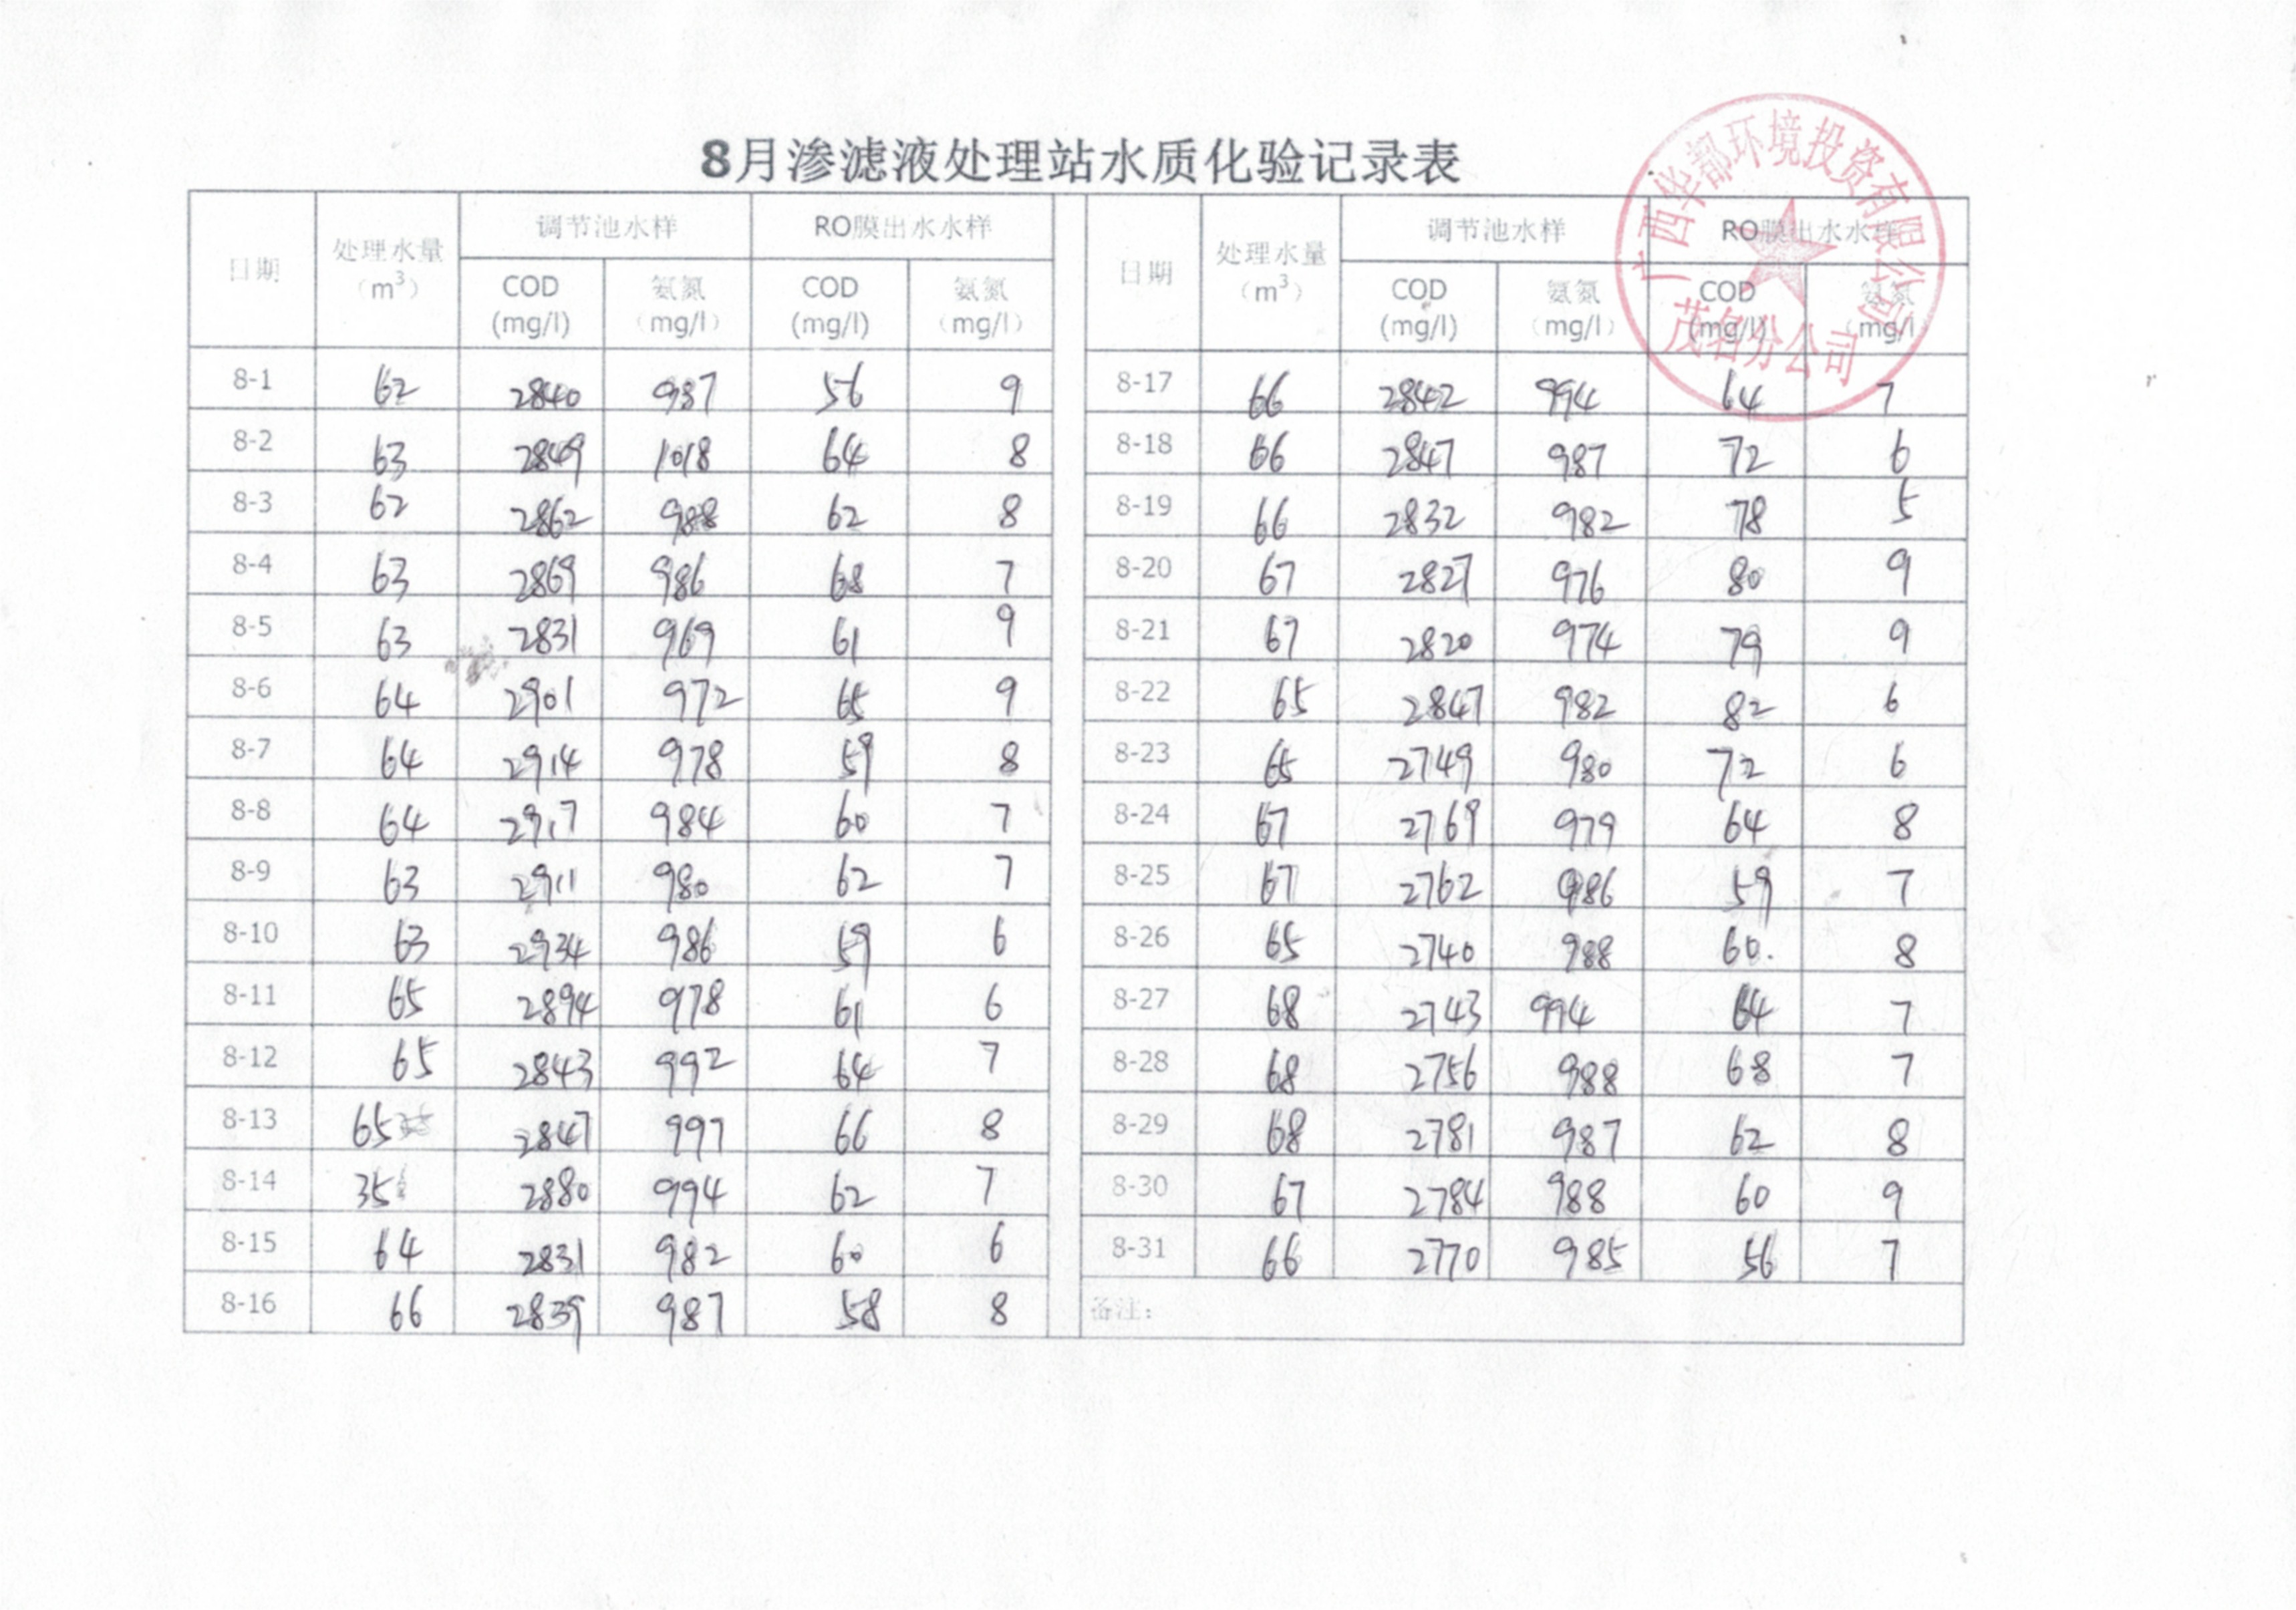 8月渗滤液处理站水质化验记录表
广西华都环境投资有限公司
茂名分公司
日期 处理水量（m³） 调节池水样 RO膜出水水样 日期 处理水量（m³） 调节池水样 RO膜出水水样
COD (mg/l) 氨氮（mg/l） COD (mg/l) 氨氮（mg/l） COD (mg/l) 氨氮（mg/l） COD (mg/l) 氨氮（mg/l
8-1 62 2840 987 56 9 8-17 66 2842 994 64 7
8-2 63 2849 1018 64 8 8-18 66 2847 987 72 6
8-3 62 2862 988 62 8 8-19 66 2832 982 78 5
8-4 63 2869 986 68 7 8-20 67 2827 976 80 9
8-5 63 2831 969 61 9 8-21 67 2820 974 79 9
8-6 64 2901 972 65 9 8-22 65 2847 982 82 6
8-7 64 2914 978 59 8 8-23 65 2749 980 72 6
8-8 64 2917 984 60 7 8-24 67 2769 979 64 8
8-9 63 2911 980 62 7 8-25 67 2762 986 59 7
8-10 63 2934 986 59 6 8-26 65 2740 988 60. 8
8-11 65 2894 978 61 6 8-27 68 2743 994 64 7
8-12 65 2843 992 64 7 8-28 68 2756 988 68 7
8-13 65 2847 997 66 8 8-29 68 2781 987 62 8
8-14 35 2880 994 62 7 8-30 67 2784 988 60 9
8-15 64 2831 982 60 6 8-31 66 2770 985 56 7
8-16 66 2839 987 58 8 备注：